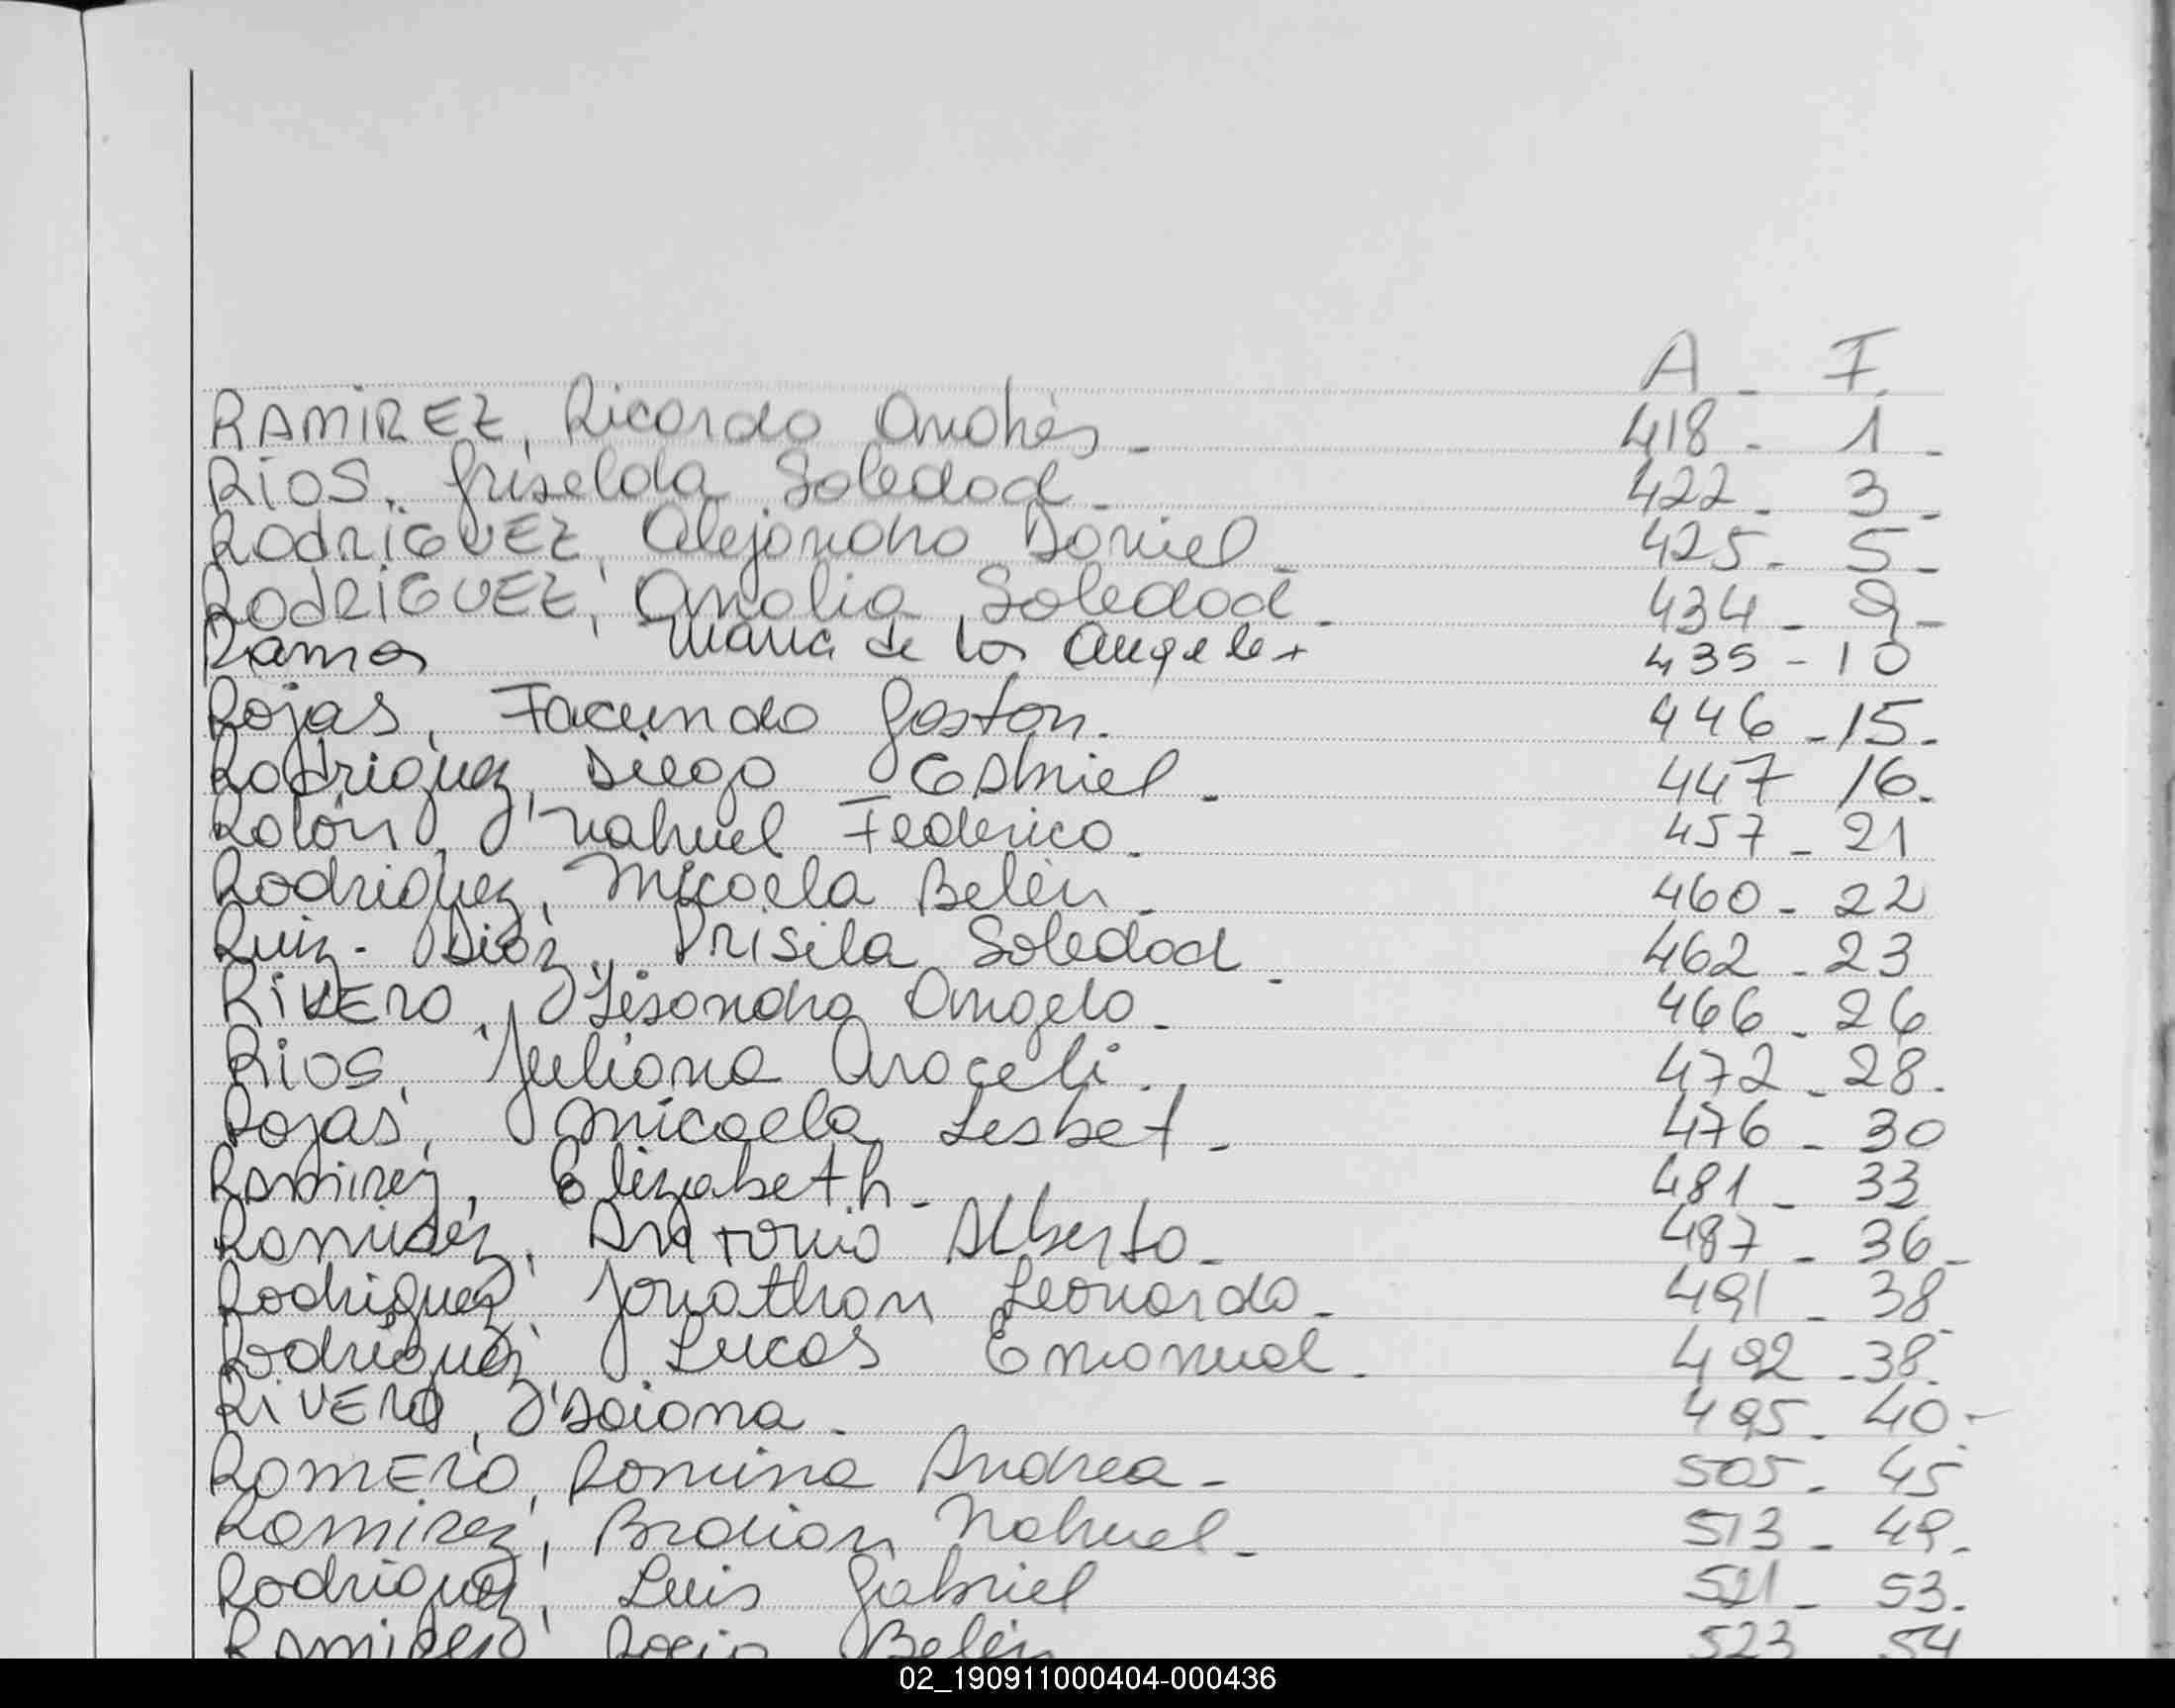 A - F.
RAMIREZ, Ricardo Andrés - 418 - 1 -
RIOS, Griselda Soledad - 422 - 3 -
RodRIGUEZ, Alejandro Daniel - 425 - 5 -
RodRIGUEZ, Analia Soledad - 434 - 9 -
Ramos Maria de los Angeles 435 - 10
Rojas, Facundo Gaston. 446 - 15 -
Rodriguez, Diego Gabriel - 447 16 -
Rolón, Nahuel Federico - 457 - 21
Rodriguez, Micaela Belén - 460 - 22
Ruiz - Diaz, Prisila Soledad - 462 - 23
RIVERO, Lisandro Angelo - 466 - 26
Rios, Juliana Araceli. 472 - 28.
Rojas, Micaela Lisbet - 476 - 30
Ramirez, Elizabeth - 481 - 33
Ramirez, Antonio Alberto - 487 - 36 -
Rodriguez, Jonathan Leonardo - 491 - 38
Rodriguez, Lucas Emanuel - 492 - 38.
RIVERO, Daiana - 495 - 40 -
ROMERO, Romina Andrea - 505 - 45
Ramirez, Braian Nahuel - 513 - 49.
Rodriguez, Luis Gabriel 521 - 53.
Ramirez, Rocio Belén 523 54
02_190911000404-000436